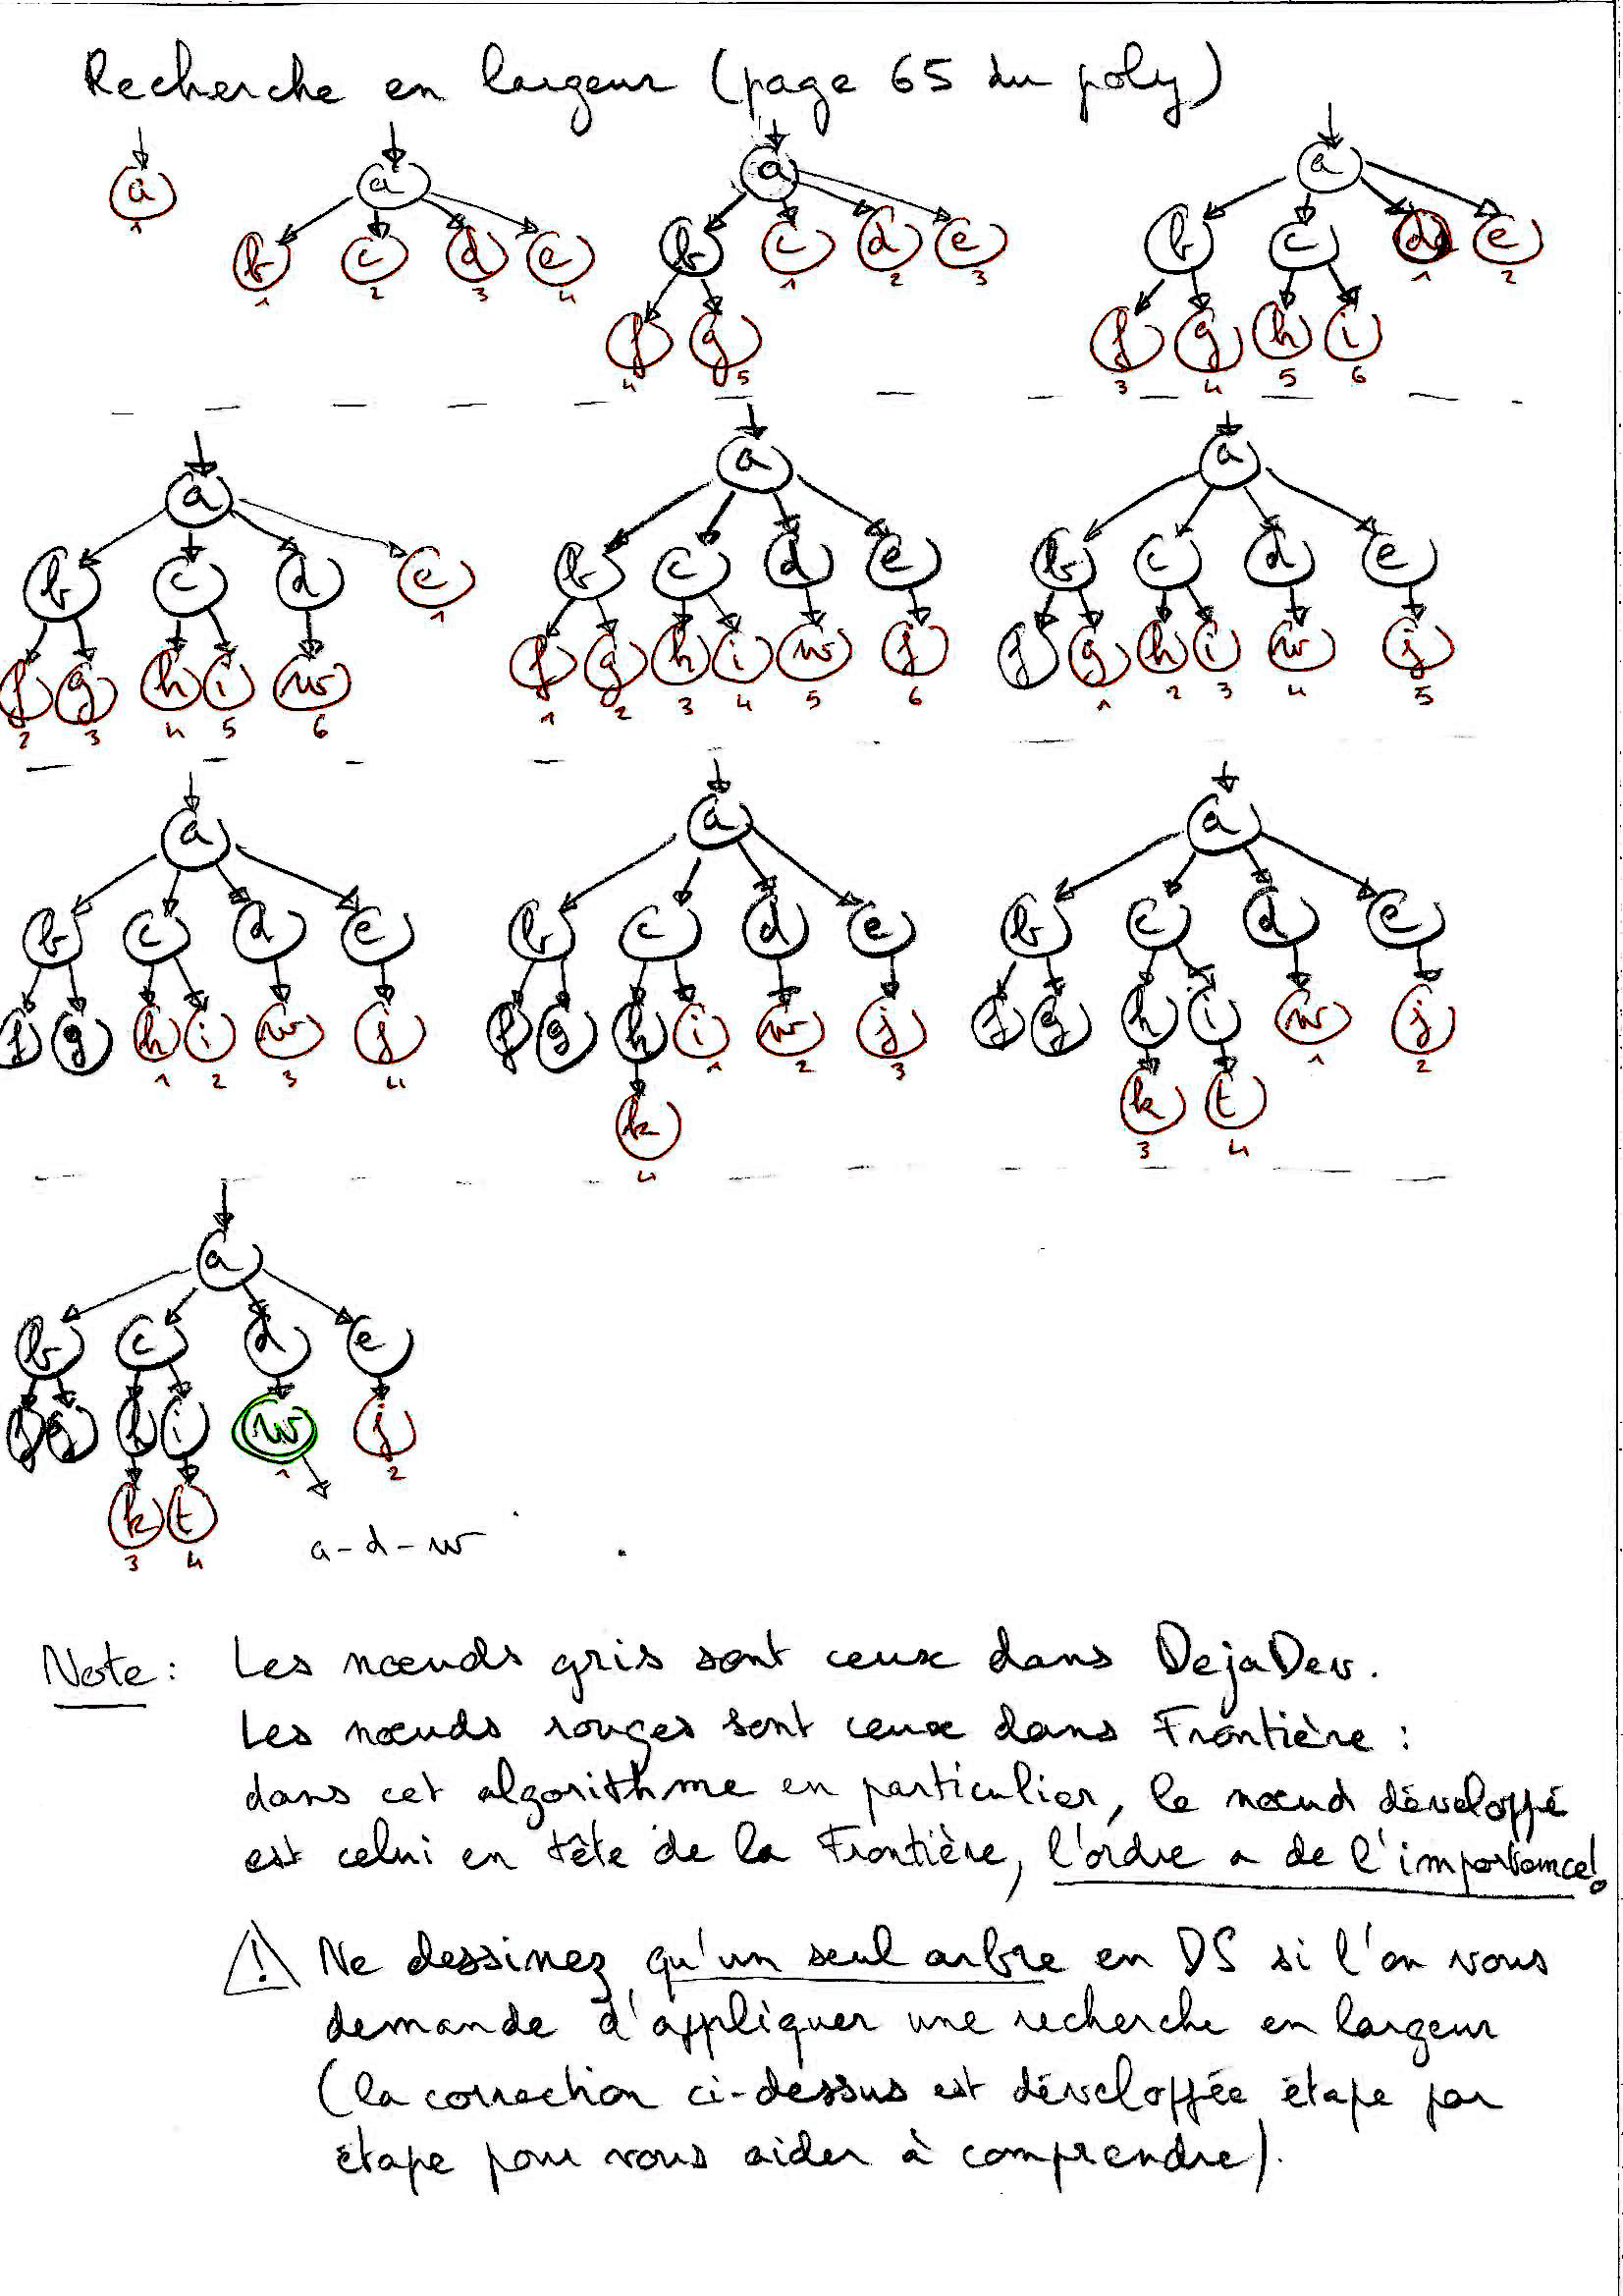 Recherche en largeur (page 65 du poly)
a a a a
1
b c d e b c d e b c d e
1 2 3 4 1 2 3 1 2
f g f g h i
4 5 3 4 5 6
a a a
b c d e b c d e b c d e
1
f g h i w f g h i w j f g h i w j
2 3 4 5 6 1 2 3 4 5 6 1 2 3 4 5
a a a
b c d e b c d e b c d e
f g h i w j f g h i w j f g h i w j
1 2 3 4 1 2 3 1 2
k k t
4 3 4
a
b c d e
f g h i w j
1 2
k t
3 4
a-d-w
Note : Les nœuds gris sont ceux dans DejaDev.
Les nœuds rouges sont ceux dans Frontière :
dans cet algorithme en particulier, le nœud développé
est celui en tête de la Frontière, l'ordre a de l'importance!
! Ne dessinez qu'un seul arbre en DS si l'on vous
demande d'appliquer une recherche en largeur
(la correction ci-dessus est développée étape par
étape pour vous aider à comprendre).